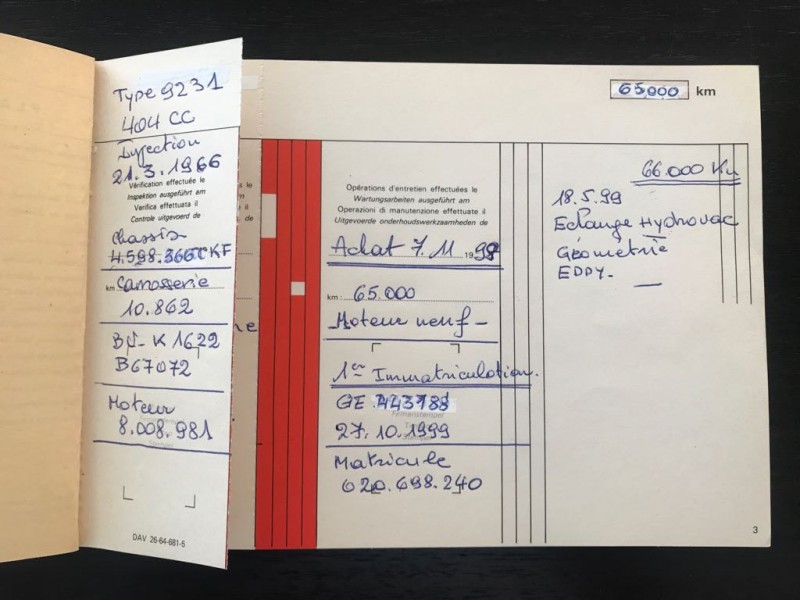 Type 9231
404 CC
Injection
21.3.1966
Vérification effectuée le
Inspektion ausgeführt am
Verifica effettuata il
Controle uitgevoerd de
Chassis
4.598.366CKF
km Carrosserie
10.862
BV-K 1622
B67072
Moteur
8.008.981
DAV 26-64-681-5
65.000 km
Opérations d'entretien effectuées le
Wartungsarbeiten ausgeführt am
Operazioni di manutenzione effettuate il
Uitgevoerde onderhoudswerkzaamheden de
Achat 7.11 1998
km: 65.000
Moteur neuf -
1er Immatriculation.
GE 443788
Firmenstempel
27.10.1999
Matricule
620.698.240
66.000 Km
18.5.99
Echange Hydrovac
Géometrie
EDDY.
3